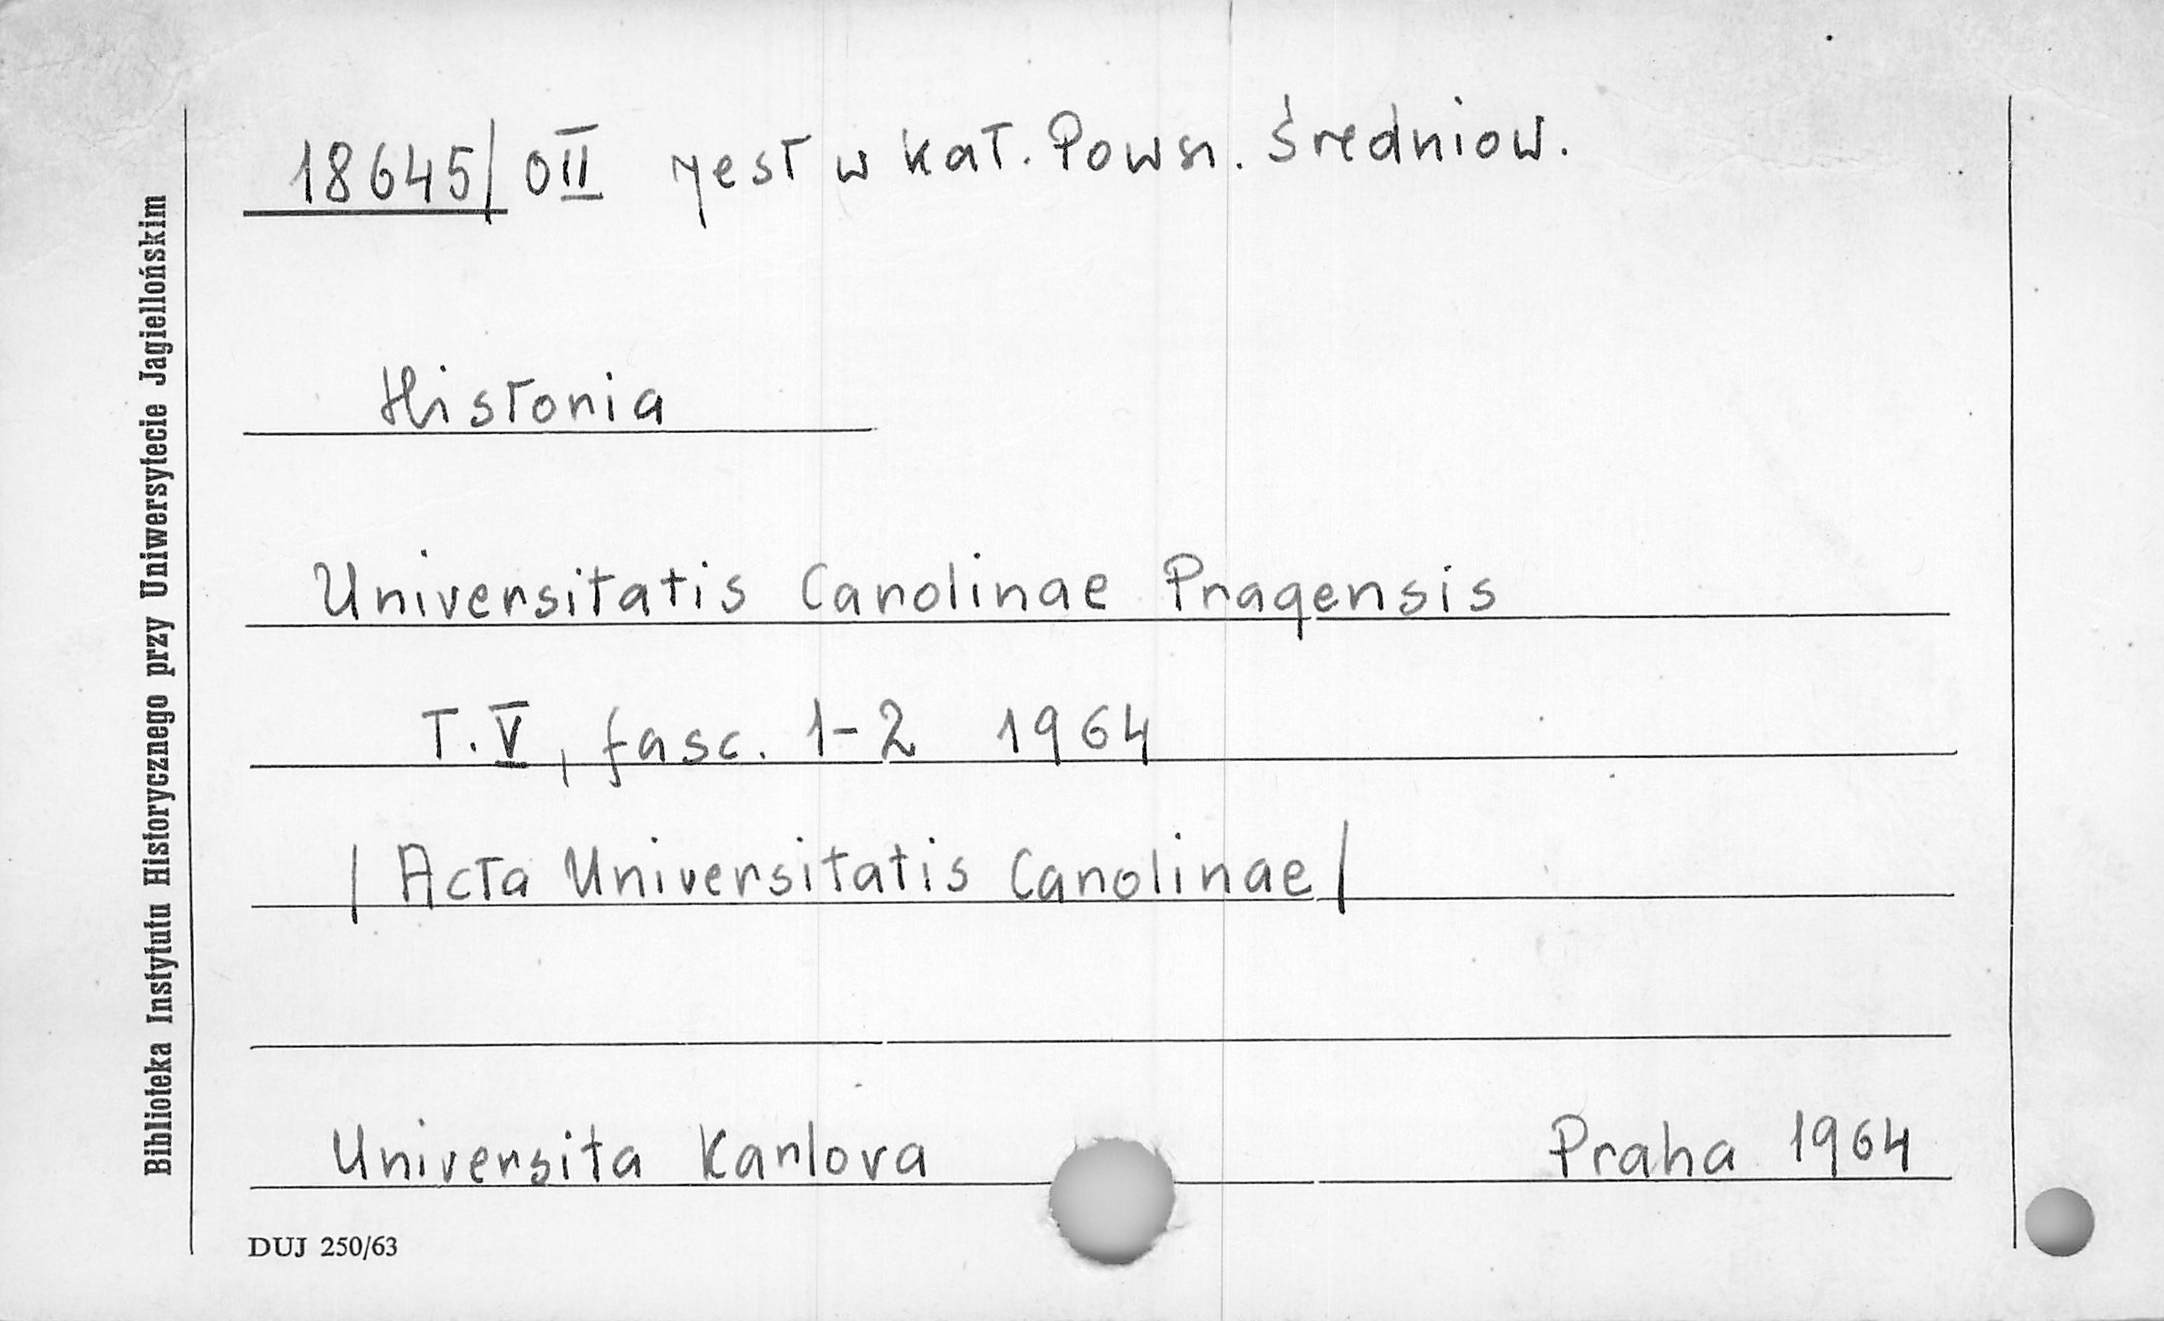 18645/ OII jest w kat. Powsz. Średniow.
Historia
Universitatis Carolinae Pragensis
T.V, fasc. 1-2 1964
/ Acta Universitatis Carolinae/
Universita Karlova Praha 1964
DUJ 250/63
Biblioteka Instytutu Historycznego przy Uniwersytecie Jagiellońskim